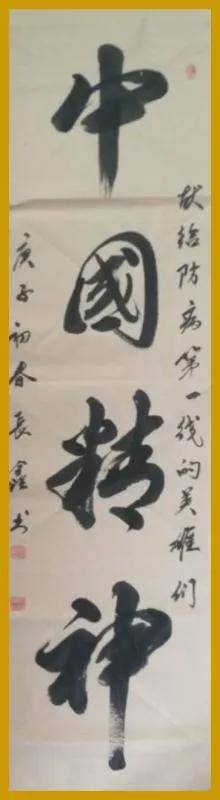 献给防病第一线的英雄们
中國精神
庚子初春長鑫书